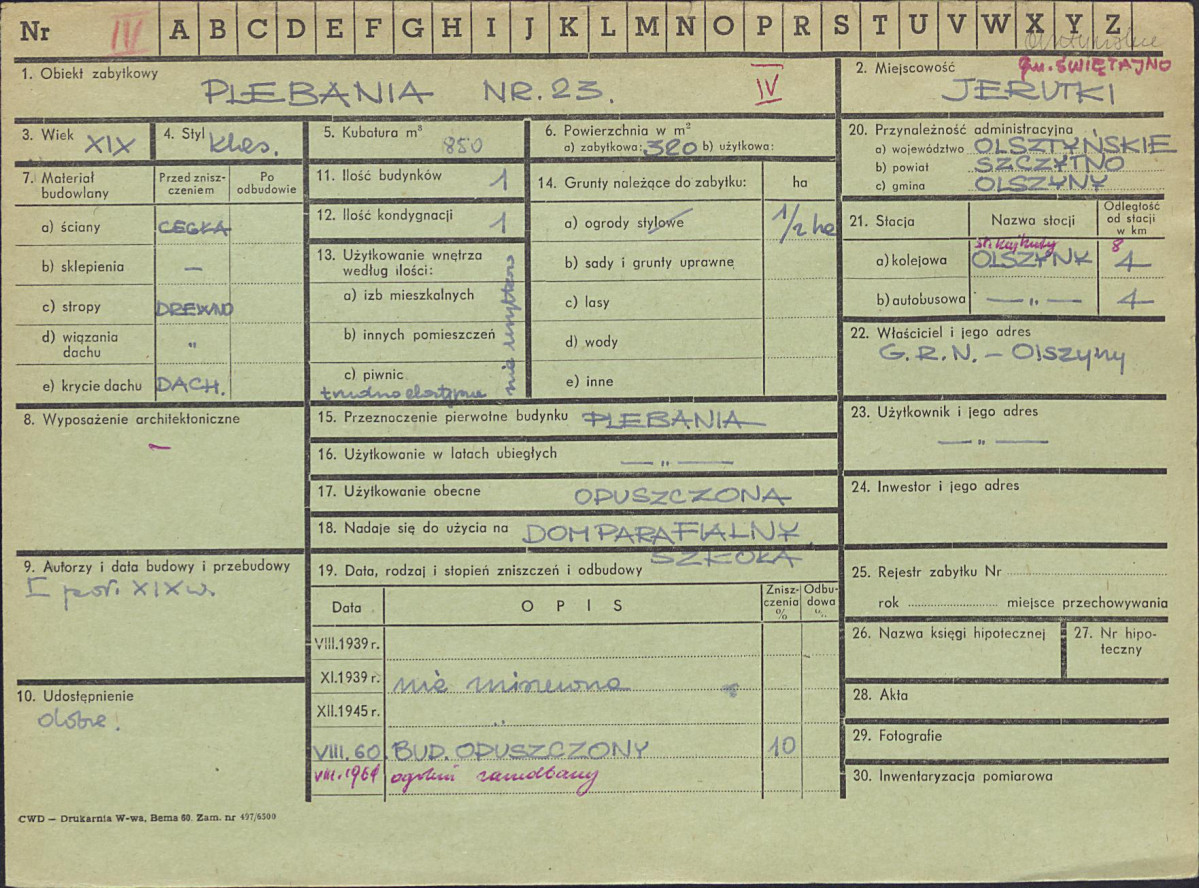 Nr III A B C D E F G H I J K L M N O P R S T U V W X Y Z
1. Obiekt zabytkowy
PLEBANIA NR. 23.
IV
2. Miejscowość
gm. ŚWIĘTAJNO
JERUTKI
3. Wiek XIX
4. Styl klas.
5. Kubatura m³
850
6. Powierzchnia w m²
a) zabytkowa: 320 b) użytkowa:
20. Przynależność administracyjna
a) województwo OLSZTYŃSKIE
b) powiat SZCZYTNO
c) gmina OLSZYNY
7. Materiał budowlany
Przed znisz-
czeniem
Po
odbudowie
a) ściany CEGŁA
b) sklepienia —
c) stropy DREWNO
d) wiązania
dachu "
e) krycie dachu DACH.
11. Ilość budynków 1
12. Ilość kondygnacji 1
13. Użytkowanie wnętrza
według ilości:
a) izb mieszkalnych
b) innych pomieszczeń
c) piwnic
trudno dostępne
nie
14. Grunty należące do zabytku: ha
a) ogrody stylowe 1/2 ha
b) sady i grunty uprawne
c) lasy
d) wody
e) inne
21. Stacja
Nazwa stacji
Odległość
od stacji
w km
a) kolejowa OLSZYNY 4
8
b) autobusowa — " — 4
22. Właściciel i jego adres
G.R.N. – Olszyny
8. Wyposażenie architektoniczne
—
15. Przeznaczenie pierwotne budynku PLEBANIA
16. Użytkowanie w latach ubiegłych — " —
17. Użytkowanie obecne OPUSZCZONA
18. Nadaje się do użycia na DOM PARAFIALNY,
SZKOŁA
23. Użytkownik i jego adres
— " —
24. Inwestor i jego adres
9. Autorzy i data budowy i przebudowy
I poł. XIX w.
19. Data, rodzaj i stopień zniszczeń i odbudowy
Data
OPIS
Znisz-
czenia
%
Odbu-
dowa
%
VIII.1939 r.
XI.1939 r. nie
XII.1945 r. "
VIII. 60. BUD. OPUSZCZONY 10
ogólni zaniedbany
25. Rejestr zabytku Nr
rok miejsce przechowywania
26. Nazwa księgi hipotecznej
27. Nr hipo-
teczny
10. Udostępnienie
dobre.
28. Akta
29. Fotografie
30. Inwentaryzacja pomiarowa
CWD — Drukarnia W-wa, Bema 60. Zam. nr 497/6500